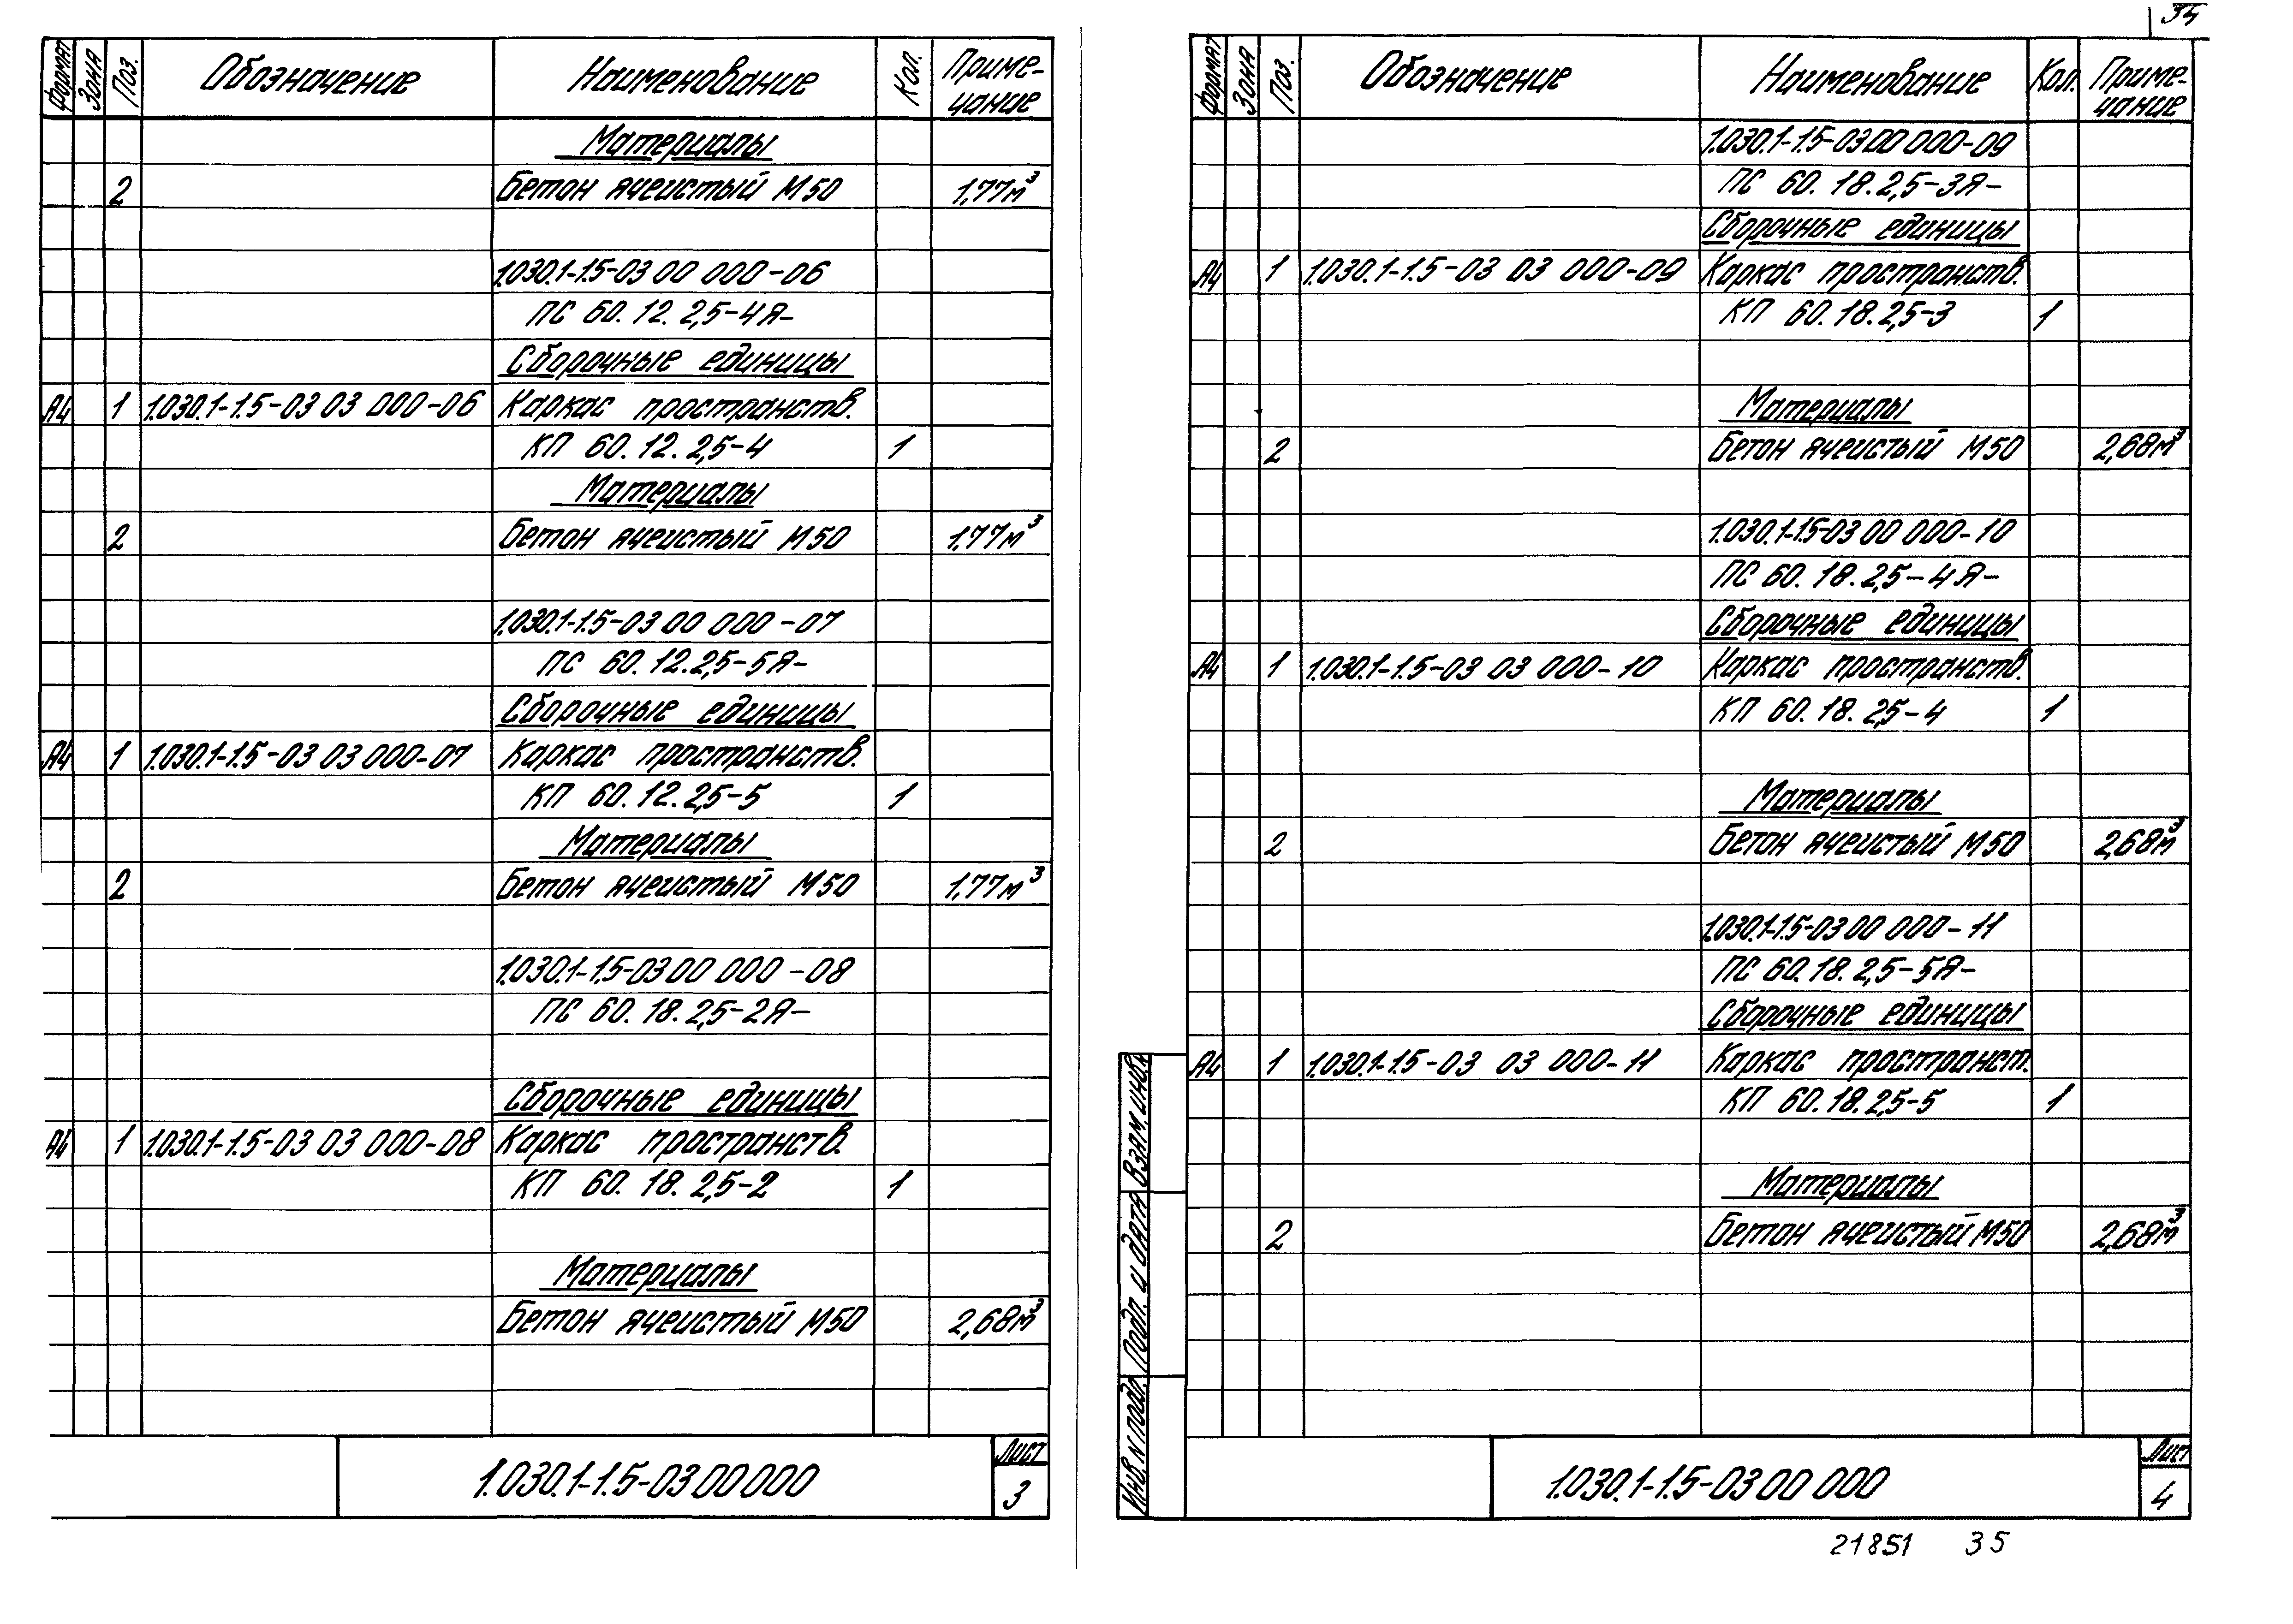 34
Формат Зона Поз. Обозначение Наименование Кол. Приме-
чание
Материалы
2 Бетон ячеистый М50 1,77м³
1.030.1-1.5-03 00 000-06
ПС 60.12.2,5-4Я-
Сборочные единицы
А4 1 1.030.1-1.5-03 03 000-06 Каркас пространств.
КП 60.12.2,5-4 1
Материалы
2 Бетон ячеистый М50 1,77м³
1.030.1-1.5-03 00 000-07
ПС 60.12.2,5-5Я-
Сборочные единицы
А4 1 1.030.1-1.5-03 03 000-07 Каркас пространств.
КП 60.12.2,5-5 1
Материалы
2 Бетон ячеистый М50 1,77м³
1.030.1-1.5-03 00 000-08
ПС 60.18.2,5-2Я-
Сборочные единицы
А4 1 1.030.1-1.5-03 03 000-08 Каркас пространств.
КП 60.18.2,5-2 1
Материалы
Бетон ячеистый М50 2,68м³
1.030.1-1.5-03 00 000
Лист
3
Формат Зона Поз. Обозначение Наименование Кол. Приме-
чание
1.030.1-1.5-03 00 000-09
ПС 60.18.2,5-3Я-
Сборочные единицы
А4 1 1.030.1-1.5-03 03 000-09 Каркас пространств.
КП 60.18.2,5-3 1
Материалы
2 Бетон ячеистый М50 2,68м³
1.030.1-1.5-03 00 000-10
ПС 60.18.2,5-4Я-
Сборочные единицы
А4 1 1.030.1-1.5-03 03 000-10 Каркас пространств.
КП 60.18.2,5-4 1
Материалы
2 Бетон ячеистый М50 2,68м³
1.030.1-1.5-03 00 000-11
ПС 60.18.2,5-5Я-
Сборочные единицы
А4 1 1.030.1-1.5-03 03 000-11 Каркас пространст.
КП 60.18.2,5-5 1
Материалы
2 Бетон ячеистый М50 2,68м³
Взам. инв.
Подп. и дата
Инв. N подл.
1.030.1-1.5-03 00 000
Лист
4
21851 35